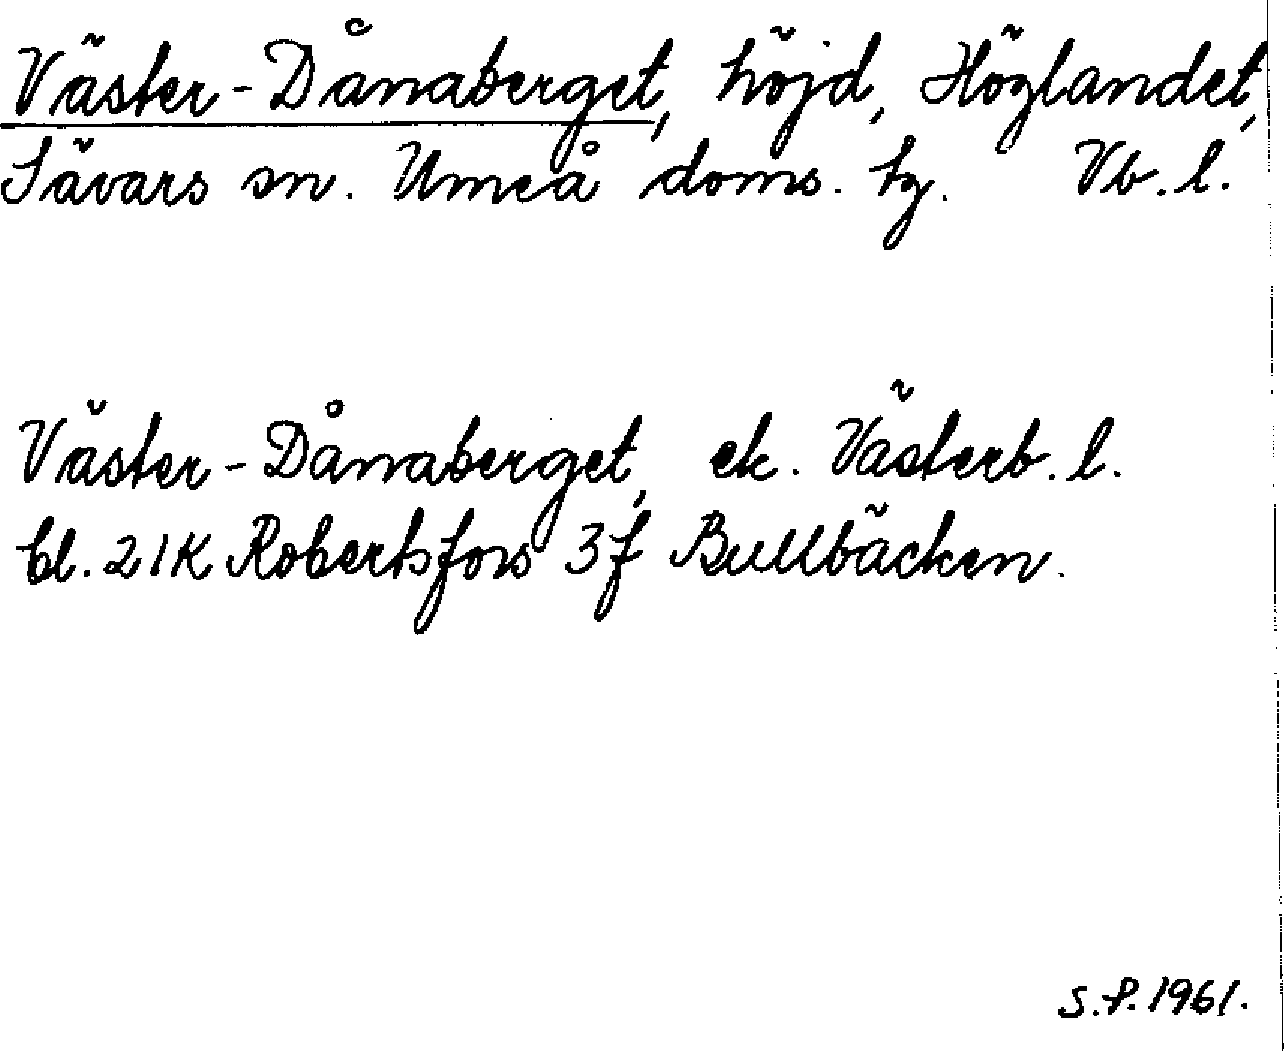 Väster-Dånaberget, höjd, Höglandet,
Sävars sn. Umeå doms. tg. Vb. l.
Väster-Dånaberget, ek. Västerb. l.
bl. 21K Robertsfors 3f Bullbäcken.
S.P. 1961.